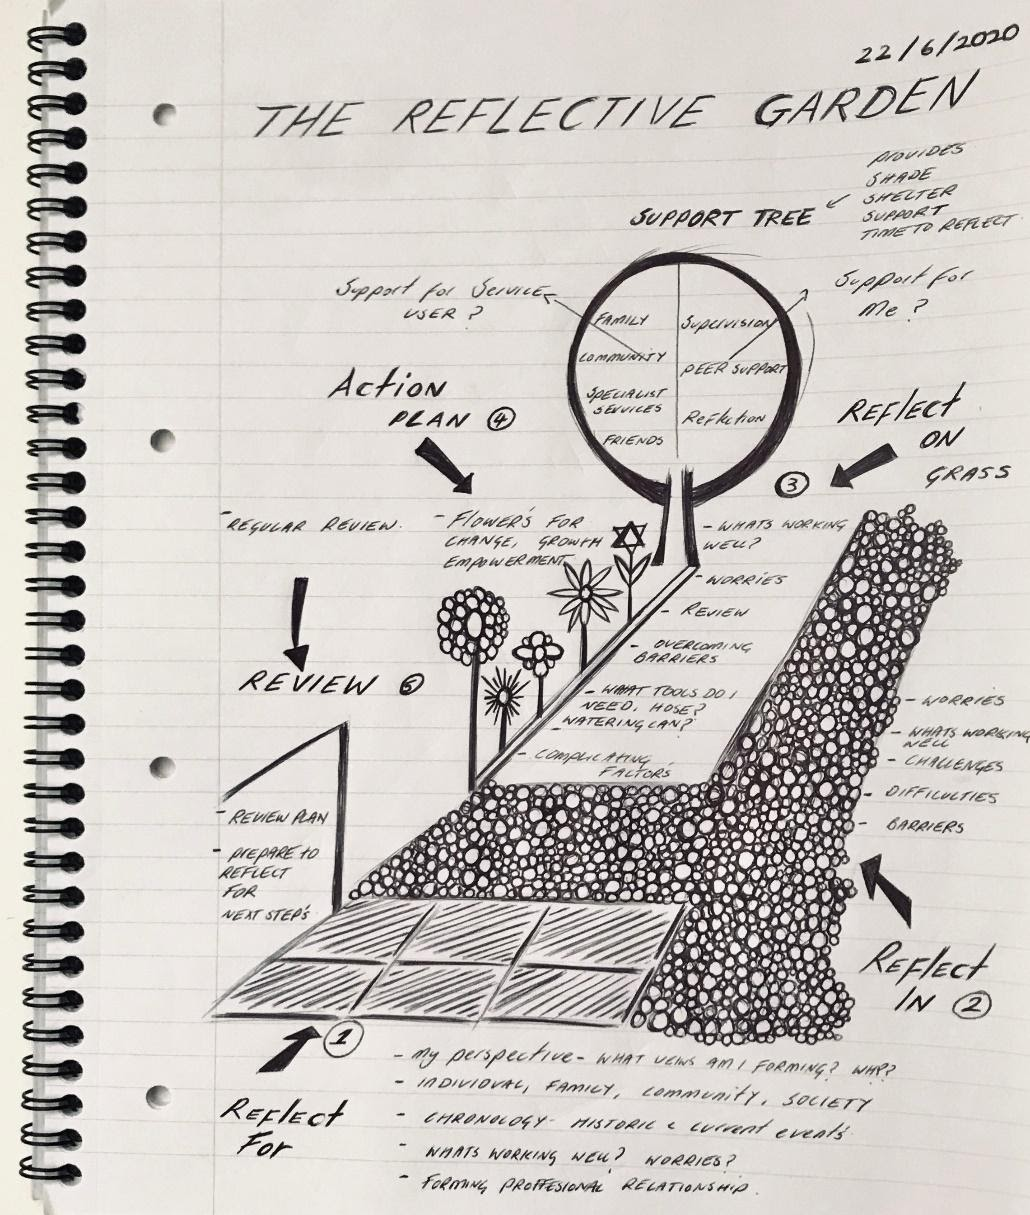 22/6/2020
THE REFLECTIVE GARDEN
PROVIDES
SHADE
SHELTER
SUPPORT
TIME TO REFLECT
SUPPORT TREE
Support for Service
USER ?
Support for
Me ?
FAMILY
COMMUNITY
SPECIALIST
SERVICES
FRIENDS
Supervision
PEER SUPPORT
Reflection
Action
PLAN ④
REFLECT
ON
GRASS
③
- REGULAR REVIEW.
- FLOWER'S FOR
CHANGE, GROWTH
EMPOWERMENT
- WHATS WORKING
WELL?
- WORRIES
- REVIEW
- OVERCOMING
BARRIERS
- WHAT TOOLS DO I
NEED, HOSE?
- WATERING CAN?
- COMPLICATING
FACTORS
REVIEW ⑤
- REVIEW PLAN
- PREPARE TO
REFLECT
FOR
NEXT STEP'S
- WORRIES
- WHATS WORKING
WELL
- CHALLENGES
- DIFFICULTIES
- BARRIERS
Reflect
IN ②
①
Reflect
For
- my perspective - WHAT VIEWS AM I FORMING? WHY?
- INDIVIDUAL, FAMILY, community, SOCIETY
- CHRONOLOGY - HISTORIC & current events
- WHATS WORKING WELL? WORRIES?
- FORMING PROFFESIONAL RELATIONSHIP.